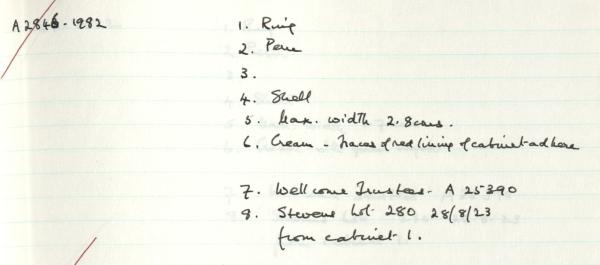 A 2846 - 1982
1. Ring
2. Peru
3.
4. Shell
5. Max. width 2.8cms.
6. Cream - traces of red lining of cabinet adhere
7. Wellcome Trustees - A 25390
8. Stevens Lot 280 28/8/23
from cabinet 1.